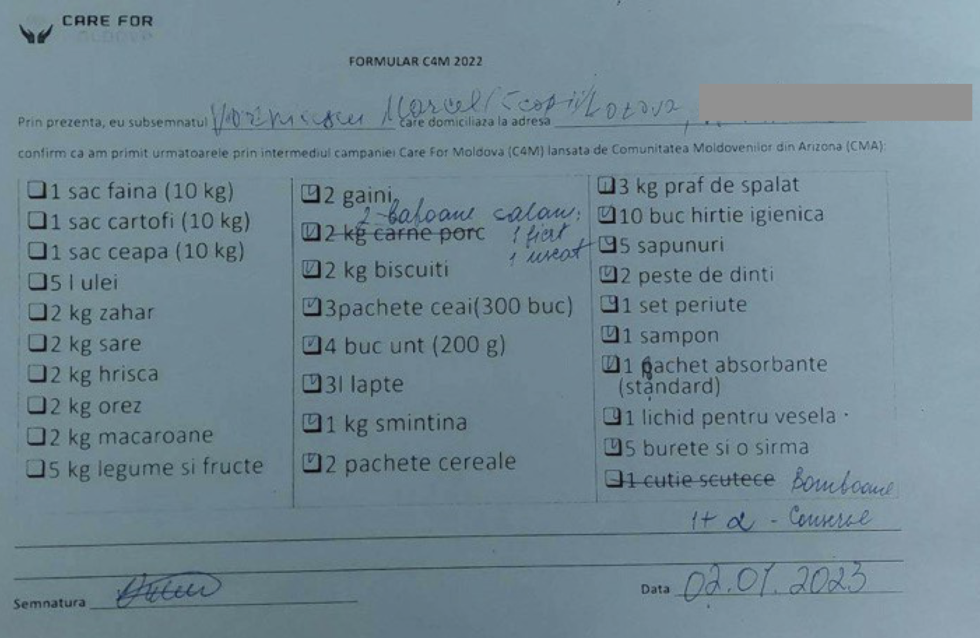 CARE FOR
MOLDOVA
FORMULAR C4M 2022
Prin prezenta, eu subsemnatul Marcel care domiciliaza la adresa Lozova,
confirm ca am primit urmatoarele prin intermediul campaniei Care For Moldova (C4M) lansata de Comunitatea Moldovenilor din Arizona (CMA):
1 sac faina (10 kg)
1 sac cartofi (10 kg)
1 sac ceapa (10 kg)
5 l ulei
2 kg zahar
2 kg sare
2 kg hrisca
2 kg orez
2 kg macaroane
5 kg legume si fructe
2 gaini
2-batoane salam:
2 kg carne porc 1 fiert
1 uscat
2 kg biscuiti
3pachete ceai(300 buc)
4 buc unt (200 g)
3l lapte
1 kg smintina
2 pachete cereale
3 kg praf de spalat
10 buc hirtie igienica
5 sapunuri
2 peste de dinti
1 set periute
1 sampon
1 pachet absorbante
(standard)
1 lichid pentru vesela
5 burete si o sirma
1 cutie scutece Bomboane
1+ 2 - Conserve
Semnatura
Data 02.01.2023